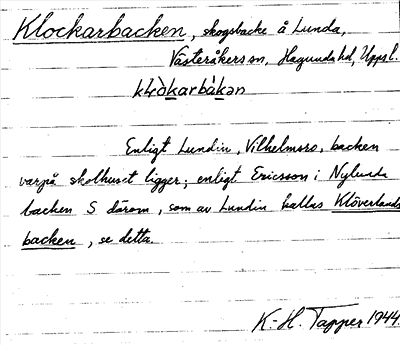 Klockarbacken, skogsbacke å Lunda,
Västeråkers sn, Hagunda hd, Uppsl.
Enligt Lundin, Vilhelmsro, backen
varpå skolhuset ligger; enligt Ericsson i Nylunda
backen S därom, som av Lundin kallas Klöverlands
backen, se detta.
K.-H. Tapper 1944.